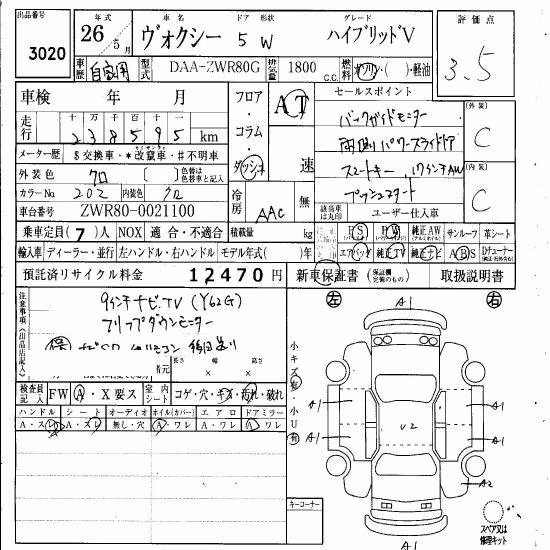 出品番号 3020
年式 26年5月
車名 ヴォクシー
ドア 形状 5 W
グレード ハイブリッドV
評価点 3.5
車歴 自家用
型式 DAA-ZWR80G
排気量 1800 C.C.
燃料 ガソリン・( )・軽油
車検 年 月
フロア・コラム・ダッシュ
AT 速
セールスポイント
バックガイドモニター
両側パワースライドドア
スマートキー, 17インチAW
プッシュスタート
(外装) C
(内装) C
走行 十万 万 千 百 十 一
2 3 8 5 9 5 km
メーター歴 $交換車・*改竄車・#不明車
外装色 クロ [ ] 色替は色替車と記入
カラーNo. 202 内装色 クロ
冷房 AAC 無
該当装備は丸印
ユーザー仕入車
車台番号 ZWR80-0021100
乗車定員 (7) 人 NOX 適合・不適合
積載量 kg
PS PW 純正AW サンルーフ 革シート
輸入車 ディーラー・並行 左ハンドル・右ハンドル モデル年式( )
エアバッグ 純正TV 純正ナビ ABS
預託済リサイクル料金 12470円
新車保証書 (保証継承完備のもの) 取扱説明書
注意事項(出品店記入)
9インチナビ・TV (Y62G)
フリップダウンモニター
保
リモコン 後日送り
長さ 幅 高さ
検査員記入 FW A・X要ス
室内シート コゲ・穴・キズ・汚れ・破れ
ハンドル シート オーディオ ホイル(カバー) エアロ ドアミラー
A・スレ A・スレ 無し・穴 A・ワレ A・ワレ A・ワレ
小キズ有・小U有
左 A1 右
A1 A1
U2
A1 A1
A2
A1
キーコーナー
スペア又は修理キット